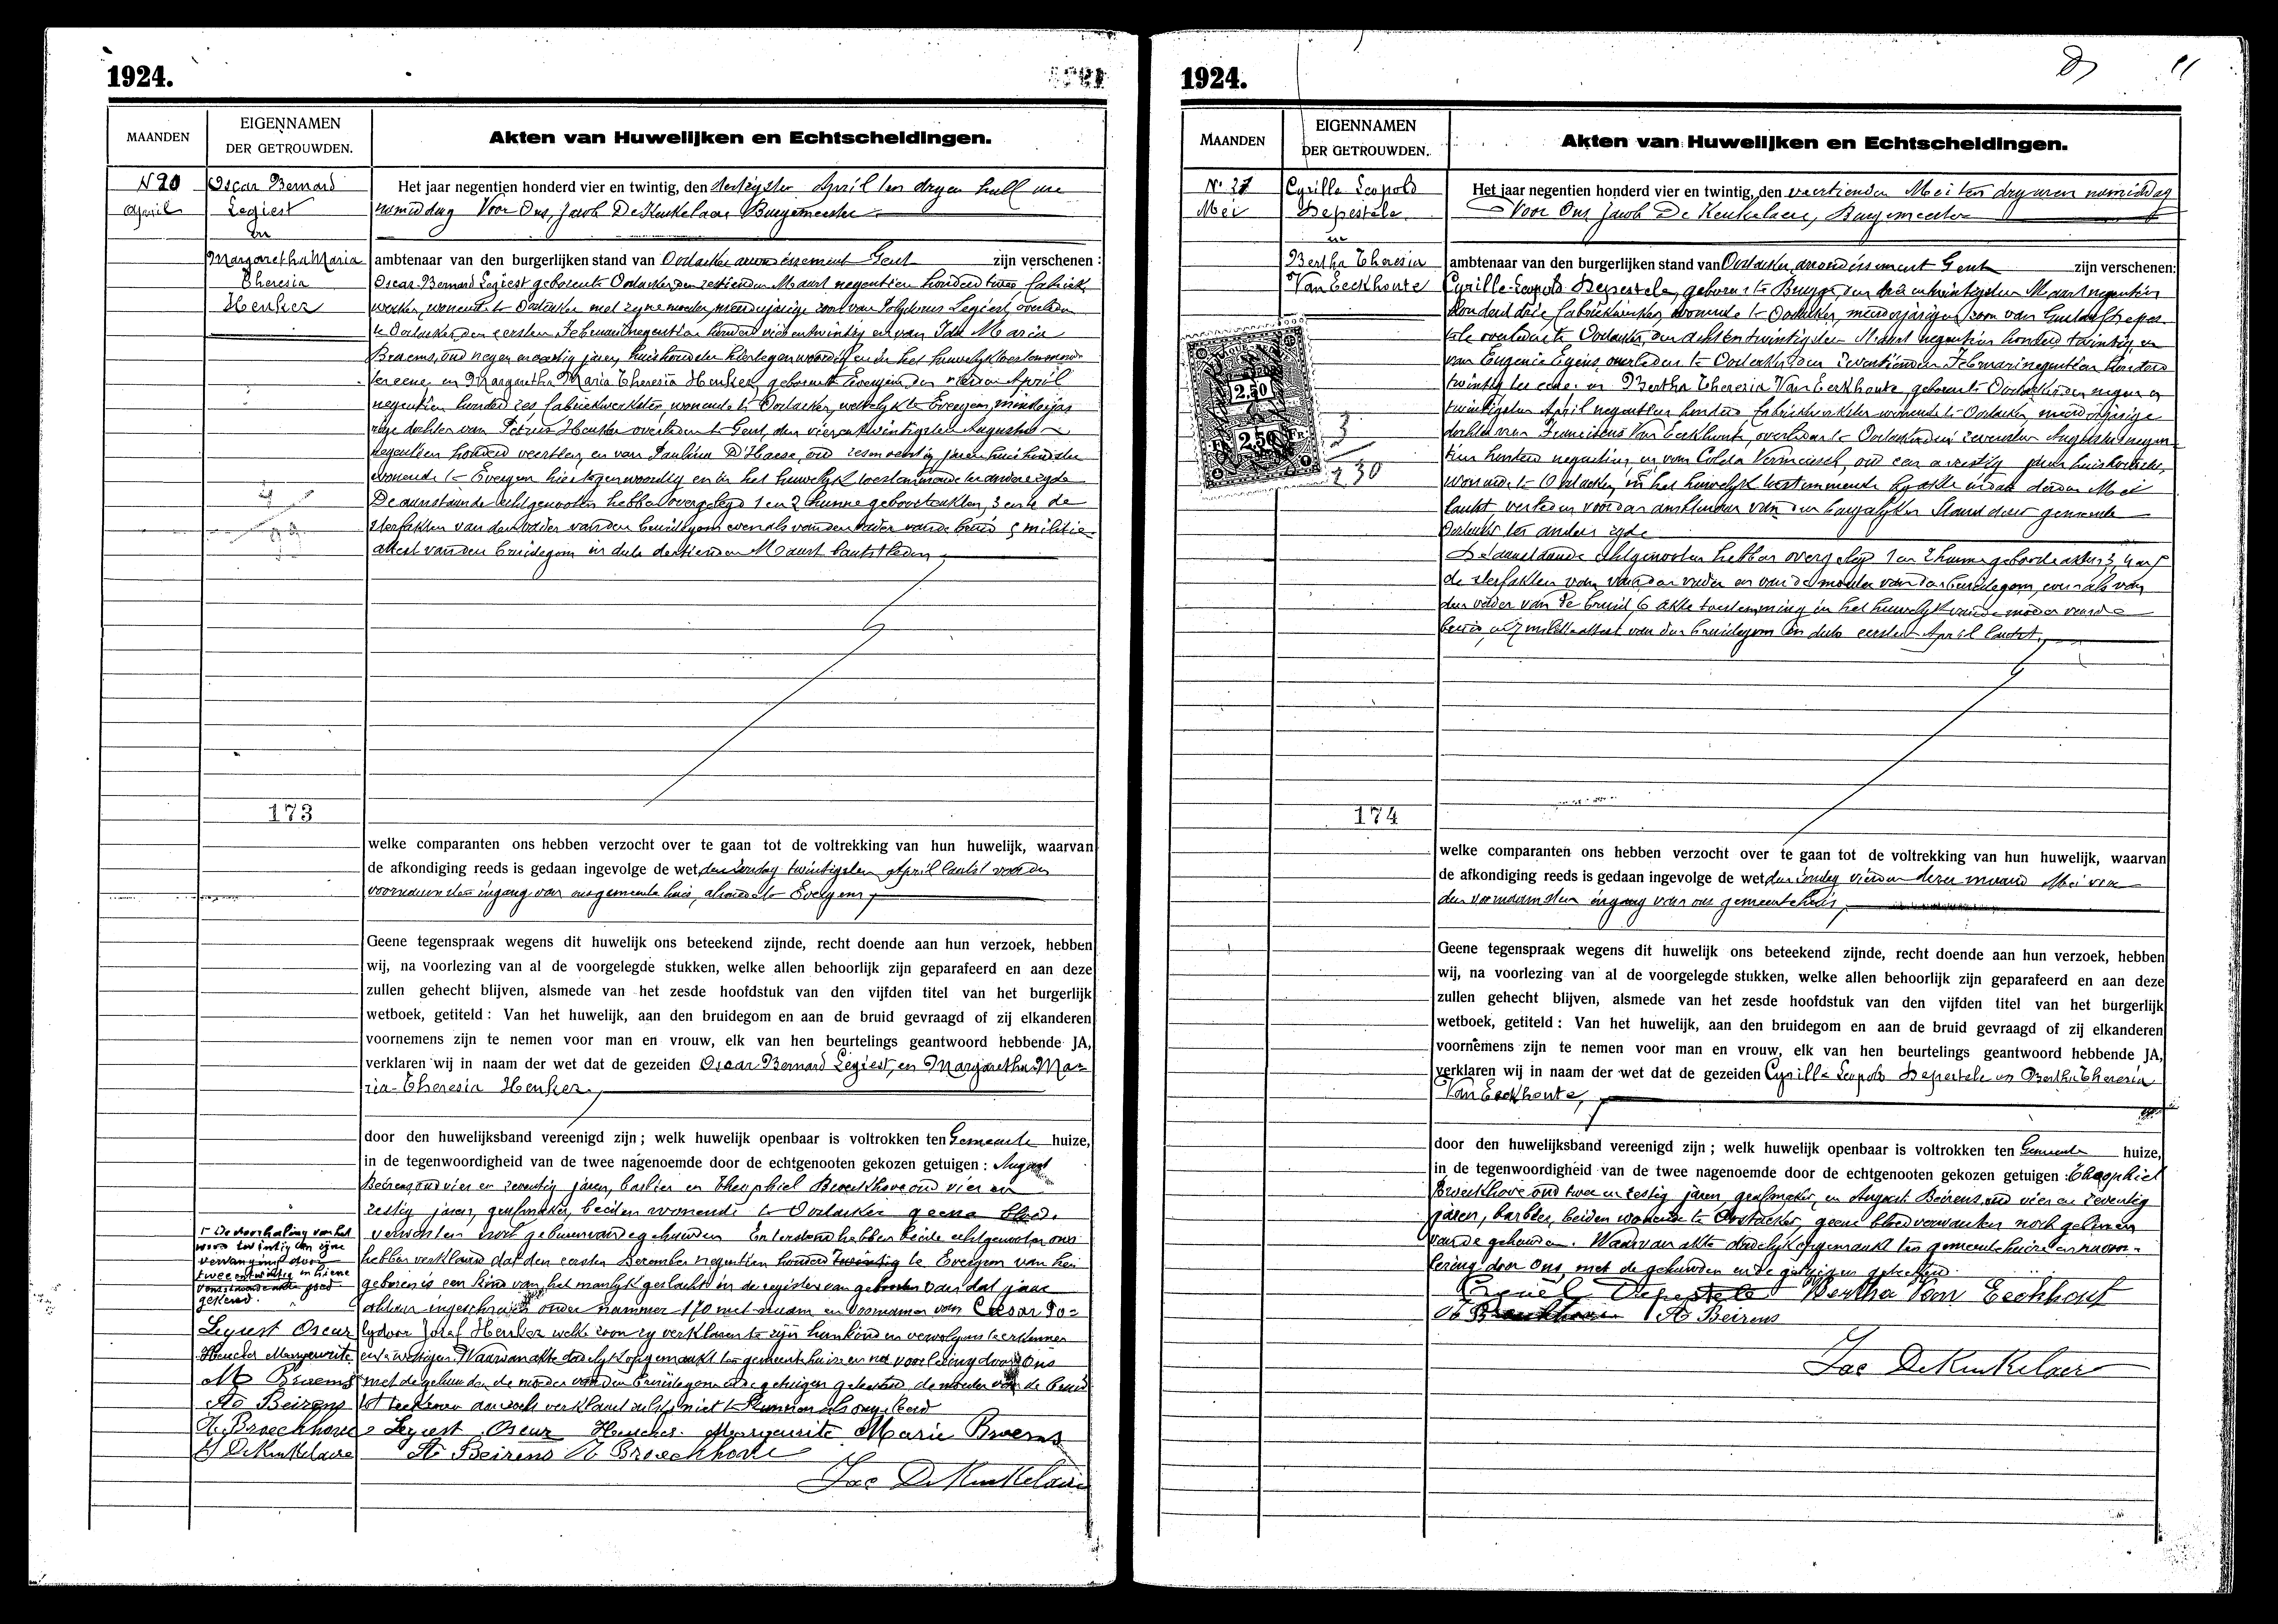 1924.
MAANDEN
EIGENNAMEN
DER GETROUWDEN.
Akten van Huwelijken en Echtscheidingen.
N 20
April
Oscar Bernard
Legiest
en
Margaretha Maria
Theresia
Henker
Het jaar negentien honderd vier en twintig, den dertigsten April ten dryen half ure
namiddag Voor Ons, Jacob De Keukelaere Burgemeester
ambtenaar van den burgerlijken stand van Oostacker arrondissement Gent zijn verschenen :
Oscar Bernard Legiest geboren te Oostacker den zestienden Maart negentien honderd twee fabriek
werker, wonende te Oostacker met zyne moeder, minderjarige zoon van Polydorus Legiest, overleden
te Oostacker den eersten Februari negentien honderd vierentwintig en van Maria
Braems, oud negen en veertig jaren huishoudster hier tegenwoordig en in het huwelyk toestemmende
ter eene, en Margaretha Maria Theresia Henker, geboren te Evergem den April
negentien honderd zes fabriekwerkster, wonende te Oostacker, wettelyk te Evergem, minderja-
rige dochter van Petrus Henker overleden te Gent, den vierentwintigsten Augustus
negentien honderd veertien, en van Paulina D'Haese, oud zesenveertig jaren huishoudster
wonende te Evergem hier tegenwoordig en in het huwelyk toestemmende ter andere zyde
De aanstaande echtgenooten hebben overgelegd 1 en 2 hunne geboorteakten, 3 en 4 de
sterfakten van den vader van den bruidegom evenals van den vader van de bruid 5 militie-
attest van den bruidegom in date dertienden Maart laatstleden
173
welke comparanten ons hebben verzocht over te gaan tot de voltrekking van hun huwelijk, waarvan
de afkondiging reeds is gedaan ingevolge de wet den zondag twintigsten April laatst voor den
voornaamsten ingang van ons gemeente huis, alsmede te Evergem
Geene tegenspraak wegens dit huwelijk ons beteekend zijnde, recht doende aan hun verzoek, hebben
wij, na voorlezing van al de voorgelegde stukken, welke allen behoorlijk zijn geparafeerd en aan deze
zullen gehecht blijven, alsmede van het zesde hoofdstuk van den vijfden titel van het burgerlijk
wetboek, getiteld : Van het huwelijk, aan den bruidegom en aan de bruid gevraagd of zij elkanderen
voornemens zijn te nemen voor man en vrouw, elk van hen beurtelings geantwoord hebbende JA,
verklaren wij in naam der wet dat de gezeiden Oscar Bernard Legiest, en Margaretha Ma-
ria-Theresia Henker,
door den huwelijksband vereenigd zijn ; welk huwelijk openbaar is voltrokken ten Gemeente huize,
in de tegenwoordigheid van de twee nagenoemde door de echtgenooten gekozen getuigen : August
Beirens, oud vier en zeventig jaren, barbier en Theophiel Broeckhove oud vier en
zestig jaren, beiden wonende te Oostacker geene bloed-
verwanten noch gebuurvan de gehuwden En terstond hebben beide echtgenooten ons
hebben verklaard dat den eersten December negentien honderd twintig te Evergem van hen
geboren is een kind van het manlyk geslacht in de registers van geboorten van dat jaar
aldaar ingeschreven onder nummer 170 met naam en voornamen van Cesar Po-
lydoor Jozef Henker welke zoon zy verklaren te zijn hun kind en vervolgens te erkennen
en te wettigen. Waarvan akte dadelyk opgemaakt ten gemeentehuize en na voorlezing door Ons
met de gehuwden de moeder van den bruidegom en de getuigen geteekend de moeder van de bruid
tot teekenen aanzocht verklaard zulks niet te kunnen als ongeleerd
1° De doorhaling van het
woord twintig en zijne
vervanging door
tweeentwintig in hiene
goed
gekeurd.
Legiest Oscar
Heucker Margueritte
M Braems
A Beirens
T. Broeckhove
J DeKeukelaere
Legiest Oscar Heucker Margueritte Marie Braems
A Beirens T Broeckhove
Jac DeKeukelaere
1924.
MAANDEN
EIGENNAMEN
DER GETROUWDEN.
Akten van Huwelijken en Echtscheidingen.
N° 21
Mei
Cyrille Leopold
Depestele
en
Bertha Theresia
Van Eeckhoute
2.50
2.50 FR
3
2 30
Het jaar negentien honderd vier en twintig, den veertienden Mei ten dry uren namiddag
Voor Ons Jacob De Keukelaere, Burgemeester
ambtenaar van den burgerlijken stand van Oostacker, arrondissement Gent zijn verschenen:
Cyrille-Leopold Depestele, geboren te Brugge, den drie entwintigsten Maart negentien
honderd drie fabriekwerker, wonende te Oostacker, minderjarigen zoon van Gustaaf Depes-
tele overleden te Oostacker, den achtentwintigsten Maart negentien honderd twintig en
van Eugenie Eyens, overleden te Oostacker den zeventienden Februari negentien honderd
twintig ter eene. en Bertha Theresia Van Eeckhoute, geboren te Oostacker den negen en
twintigsten April negentien honderd fabriekwerkster wonende te Oostacker minderjarige
dochter van Franciscus Van Eeckhoute, overleden te Oostacker den zevensten Augustus negen-
tien honderd negentien, en van Coleta Vermeirsch, oud een en zestig jaren huishoudster,
wonende te Oostacker, in het huwelyk toestemmende by akte in date derden Mei
laatst, verleden voor den ambtenaar van den burgerlyken Stand dezer gemeente
Oostacker ter andere zyde
De aanstaande echtgenooten hebben overgelegd 1 en 2 hunne geboorteakten; 3, 4 en 5
de sterfakten van van den vader en van de moeder van den bruidegom, evenals van
den vader van de bruid, 6 akte toestemming in het huwelyk van de moeder van de
bruid, en 7 militieattest van den bruidegom in date eersten April laatst,
174
welke comparanten ons hebben verzocht over te gaan tot de voltrekking van hun huwelijk, waarvan
de afkondiging reeds is gedaan ingevolge de wet den zondag vierden dezer maand Mei voor
den voornaamsten ingang van ons gemeentehuis,
Geene tegenspraak wegens dit huwelijk ons beteekend zijnde, recht doende aan hun verzoek, hebben
wij, na voorlezing van al de voorgelegde stukken, welke allen behoorlijk zijn geparafeerd en aan deze
zullen gehecht blijven, alsmede van het zesde hoofdstuk van den vijfden titel van het burgerlijk
wetboek, getiteld : Van het huwelijk, aan den bruidegom en aan de bruid gevraagd of zij elkanderen
voornemens zijn te nemen voor man en vrouw, elk van hen beurtelings geantwoord hebbende JA,
verklaren wij in naam der wet dat de gezeiden Cyrille Leopold Depestele en Bertha Theresia
Van Eeckhoute,
door den huwelijksband vereenigd zijn ; welk huwelijk openbaar is voltrokken ten Gemeente huize,
in de tegenwoordigheid van de twee nagenoemde door de echtgenooten gekozen getuigen : Theophiel
Broeckhove oud twee en zestig jaren, en August Beirens, oud vier en zeventig
jaren, barbier, beiden wonende te Oostacker, geene bloedverwanten noch
van de gehuwden. Waarvan akte dadelyk opgemaakt ten gemeentehuize en na voor-
lezing door Ons, met de gehuwden en de getuigen geteekend.
Depestele Bertha Van Eeckhout
Th Broeckhove A Beirens
Jac DeKeukelaere